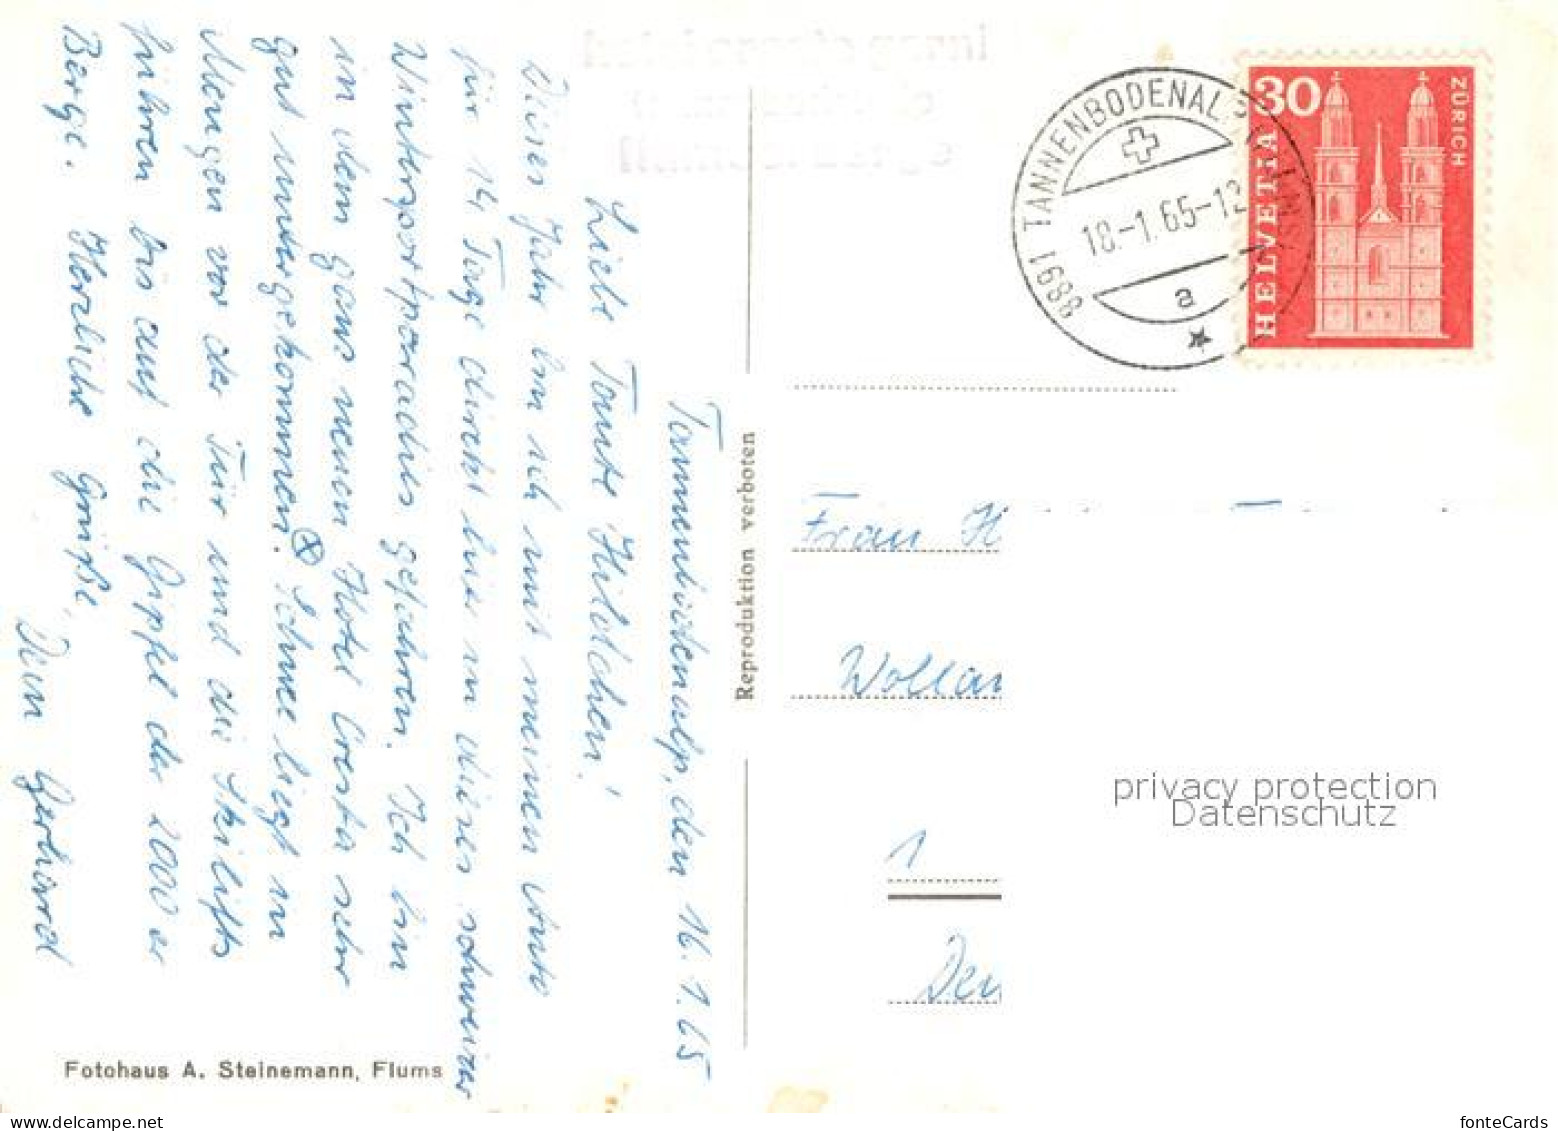 Tannenbodenalp, den 16.1.65
Liebe Tante Hildchen!
Dieses Jahr bin ich mit meinem Auto
für 14 Tage direkt bis in dieses schweizer
Wintersportparadies gefahren. Ich bin
in dem ganz neuen Hotel Cresta sehr
gut untergekommen. Schnee liegt in
Mengen vor der Tür und die Skilifts
führen bis auf die Gipfel der 2000er
Berge. Herzliche Grüße,
Dein Gerhard
Fotohaus A. Steinemann, Flums
Reproduktion verboten
8891 TANNENBODENALP
18.-1.65-12
a
30
HELVETIA
ZÜRICH
Frau H
Wollan
1
Den
privacy protection
Datenschutz
fonteCards
www.delcampe.net